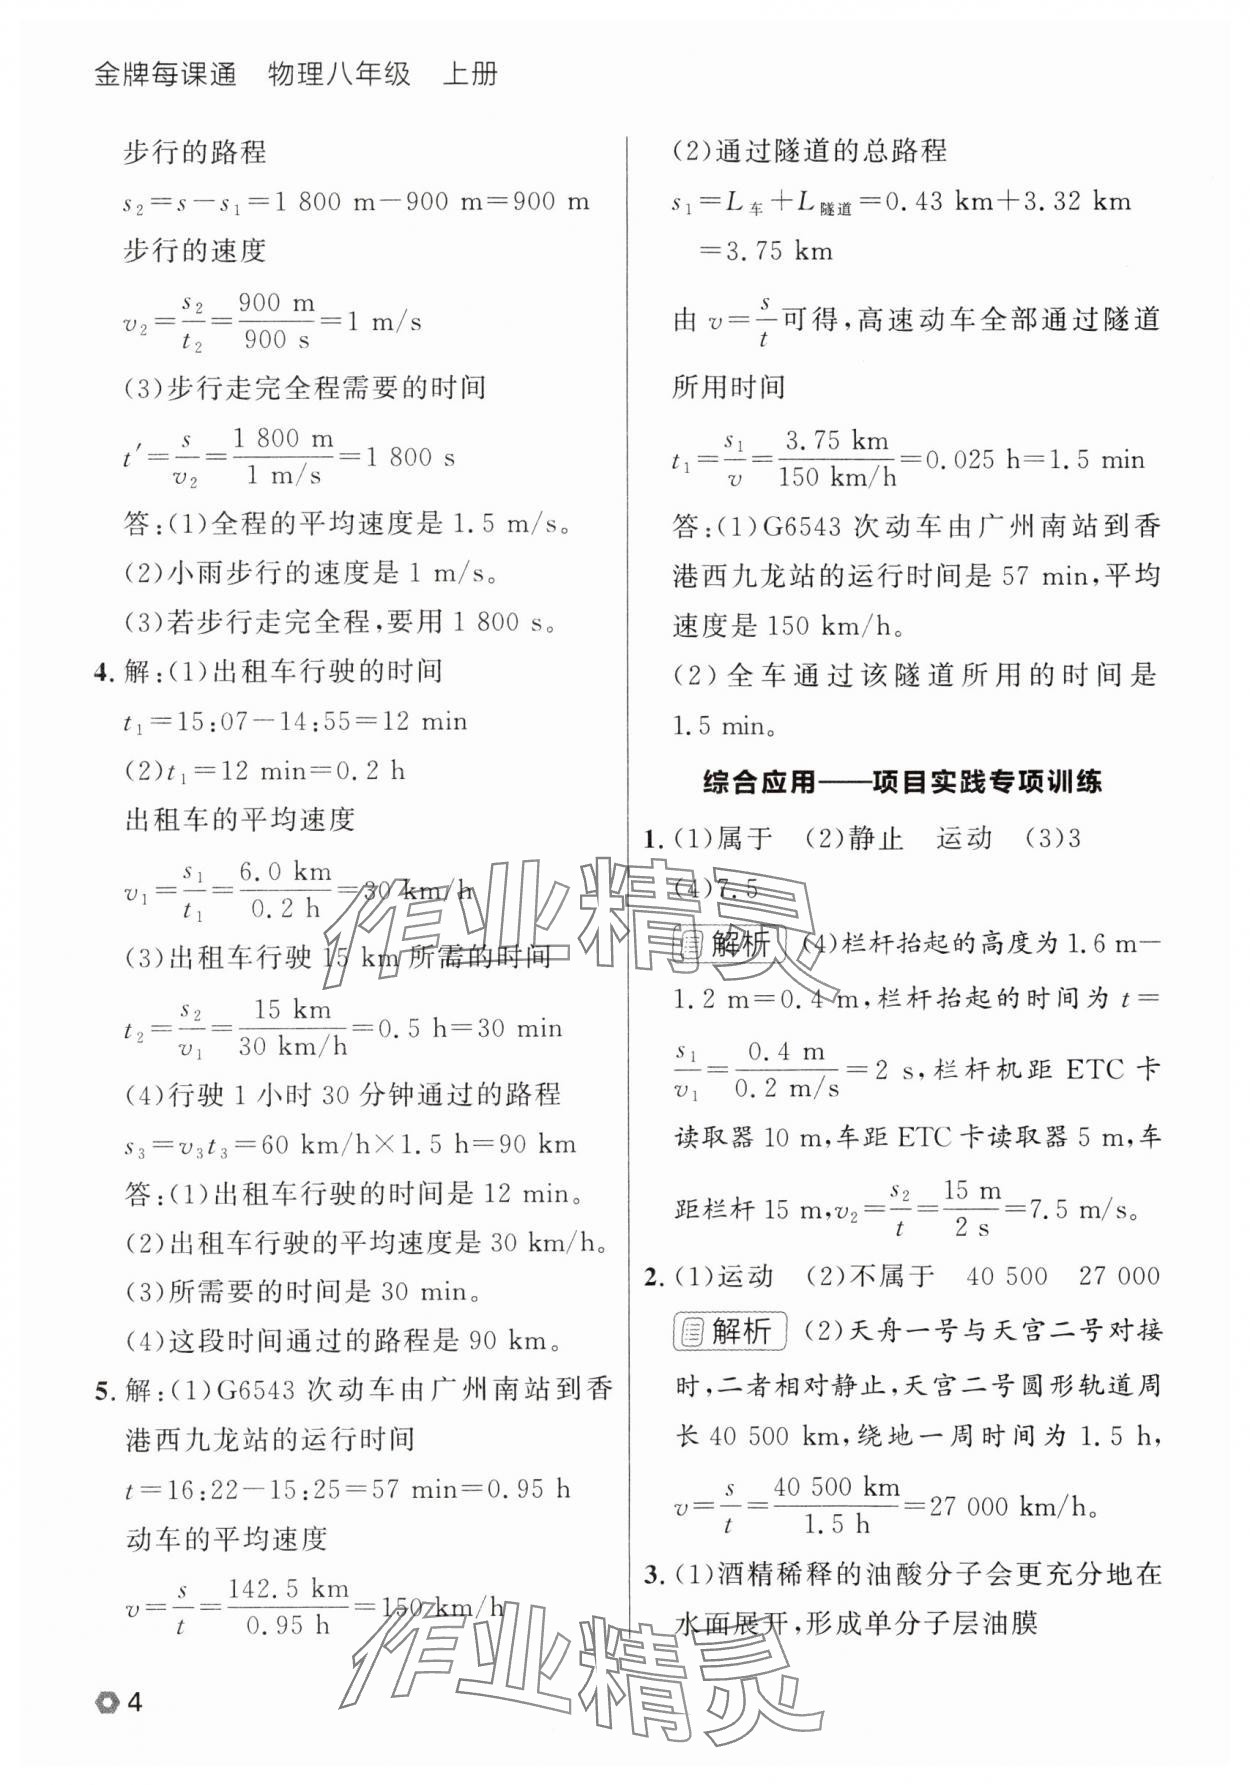 金牌每课通 物理八年级 上册
步行的路程
s₂=s-s₁=1 800 m-900 m=900 m
步行的速度
v₂=s₂/t₂=900 m/900 s=1 m/s
(3)步行走完全程需要的时间
t′=s/v₂=1 800 m/1 m/s=1 800 s
答:(1)全程的平均速度是 1.5 m/s。
(2)小雨步行的速度是 1 m/s。
(3)若步行走完全程,要用 1 800 s。
4. 解:(1)出租车行驶的时间
t₁=15:07-14:55=12 min
(2)t₁=12 min=0.2 h
出租车的平均速度
v₁=s₁/t₁=6.0 km/0.2 h=30 km/h
(3)出租车行驶 15 km 所需的时间
t₂=s₂/v₁=15 km/30 km/h=0.5 h=30 min
(4)行驶 1 小时 30 分钟通过的路程
s₃=v₃t₃=60 km/h×1.5 h=90 km
答:(1)出租车行驶的时间是 12 min。
(2)出租车行驶的平均速度是 30 km/h。
(3)所需要的时间是 30 min。
(4)这段时间通过的路程是 90 km。
5. 解:(1)G6543 次动车由广州南站到香
港西九龙站的运行时间
t=16:22-15:25=57 min=0.95 h
动车的平均速度
v=s/t=142.5 km/0.95 h=150 km/h
(2)通过隧道的总路程
s₁=L车+L隧道=0.43 km+3.32 km
=3.75 km
由 v=s/t可得,高速动车全部通过隧道
所用时间
t₁=s₁/v=3.75 km/150 km/h=0.025 h=1.5 min
答:(1)G6543 次动车由广州南站到香
港西九龙站的运行时间是 57 min,平均
速度是 150 km/h。
(2)全车通过该隧道所用的时间是
1.5 min。
综合应用——项目实践专项训练
1. (1)属于 (2)静止 运动 (3)3
(4)7.5
解析 (4)栏杆抬起的高度为 1.6 m-
1.2 m=0.4 m,栏杆抬起的时间为 t=
s₁/v₁=0.4 m/0.2 m/s=2 s,栏杆机距 ETC 卡
读取器 10 m,车距 ETC 卡读取器 5 m,车
距栏杆 15 m,v₂=s₂/t=15 m/2 s=7.5 m/s。
2. (1)运动 (2)不属于 40 500 27 000
解析 (2)天舟一号与天宫二号对接
时,二者相对静止,天宫二号圆形轨道周
长 40 500 km,绕地一周时间为 1.5 h,
v=s/t=40 500 km/1.5 h=27 000 km/h。
3. (1)酒精稀释的油酸分子会更充分地在
水面展开,形成单分子层油膜
4
作业精灵
作业精灵